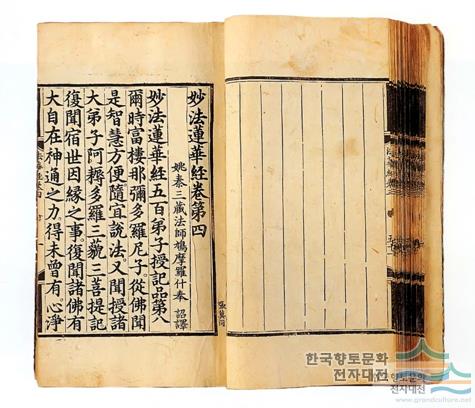 妙法蓮華經卷第四
姚秦三藏法師鳩摩羅什奉 詔譯
妙法蓮華經五百弟子授記品第八
爾時富樓那彌多羅尼子。從佛聞
是智慧方便隨宜說法。又聞授諸
大弟子阿耨多羅三藐三菩提記
復聞宿世因緣之事。復聞諸佛有
大自在神通之力。得未曾有。心淨
한국향토문화
전자대전
한국향토문화
전자대전
www.grandculture.net